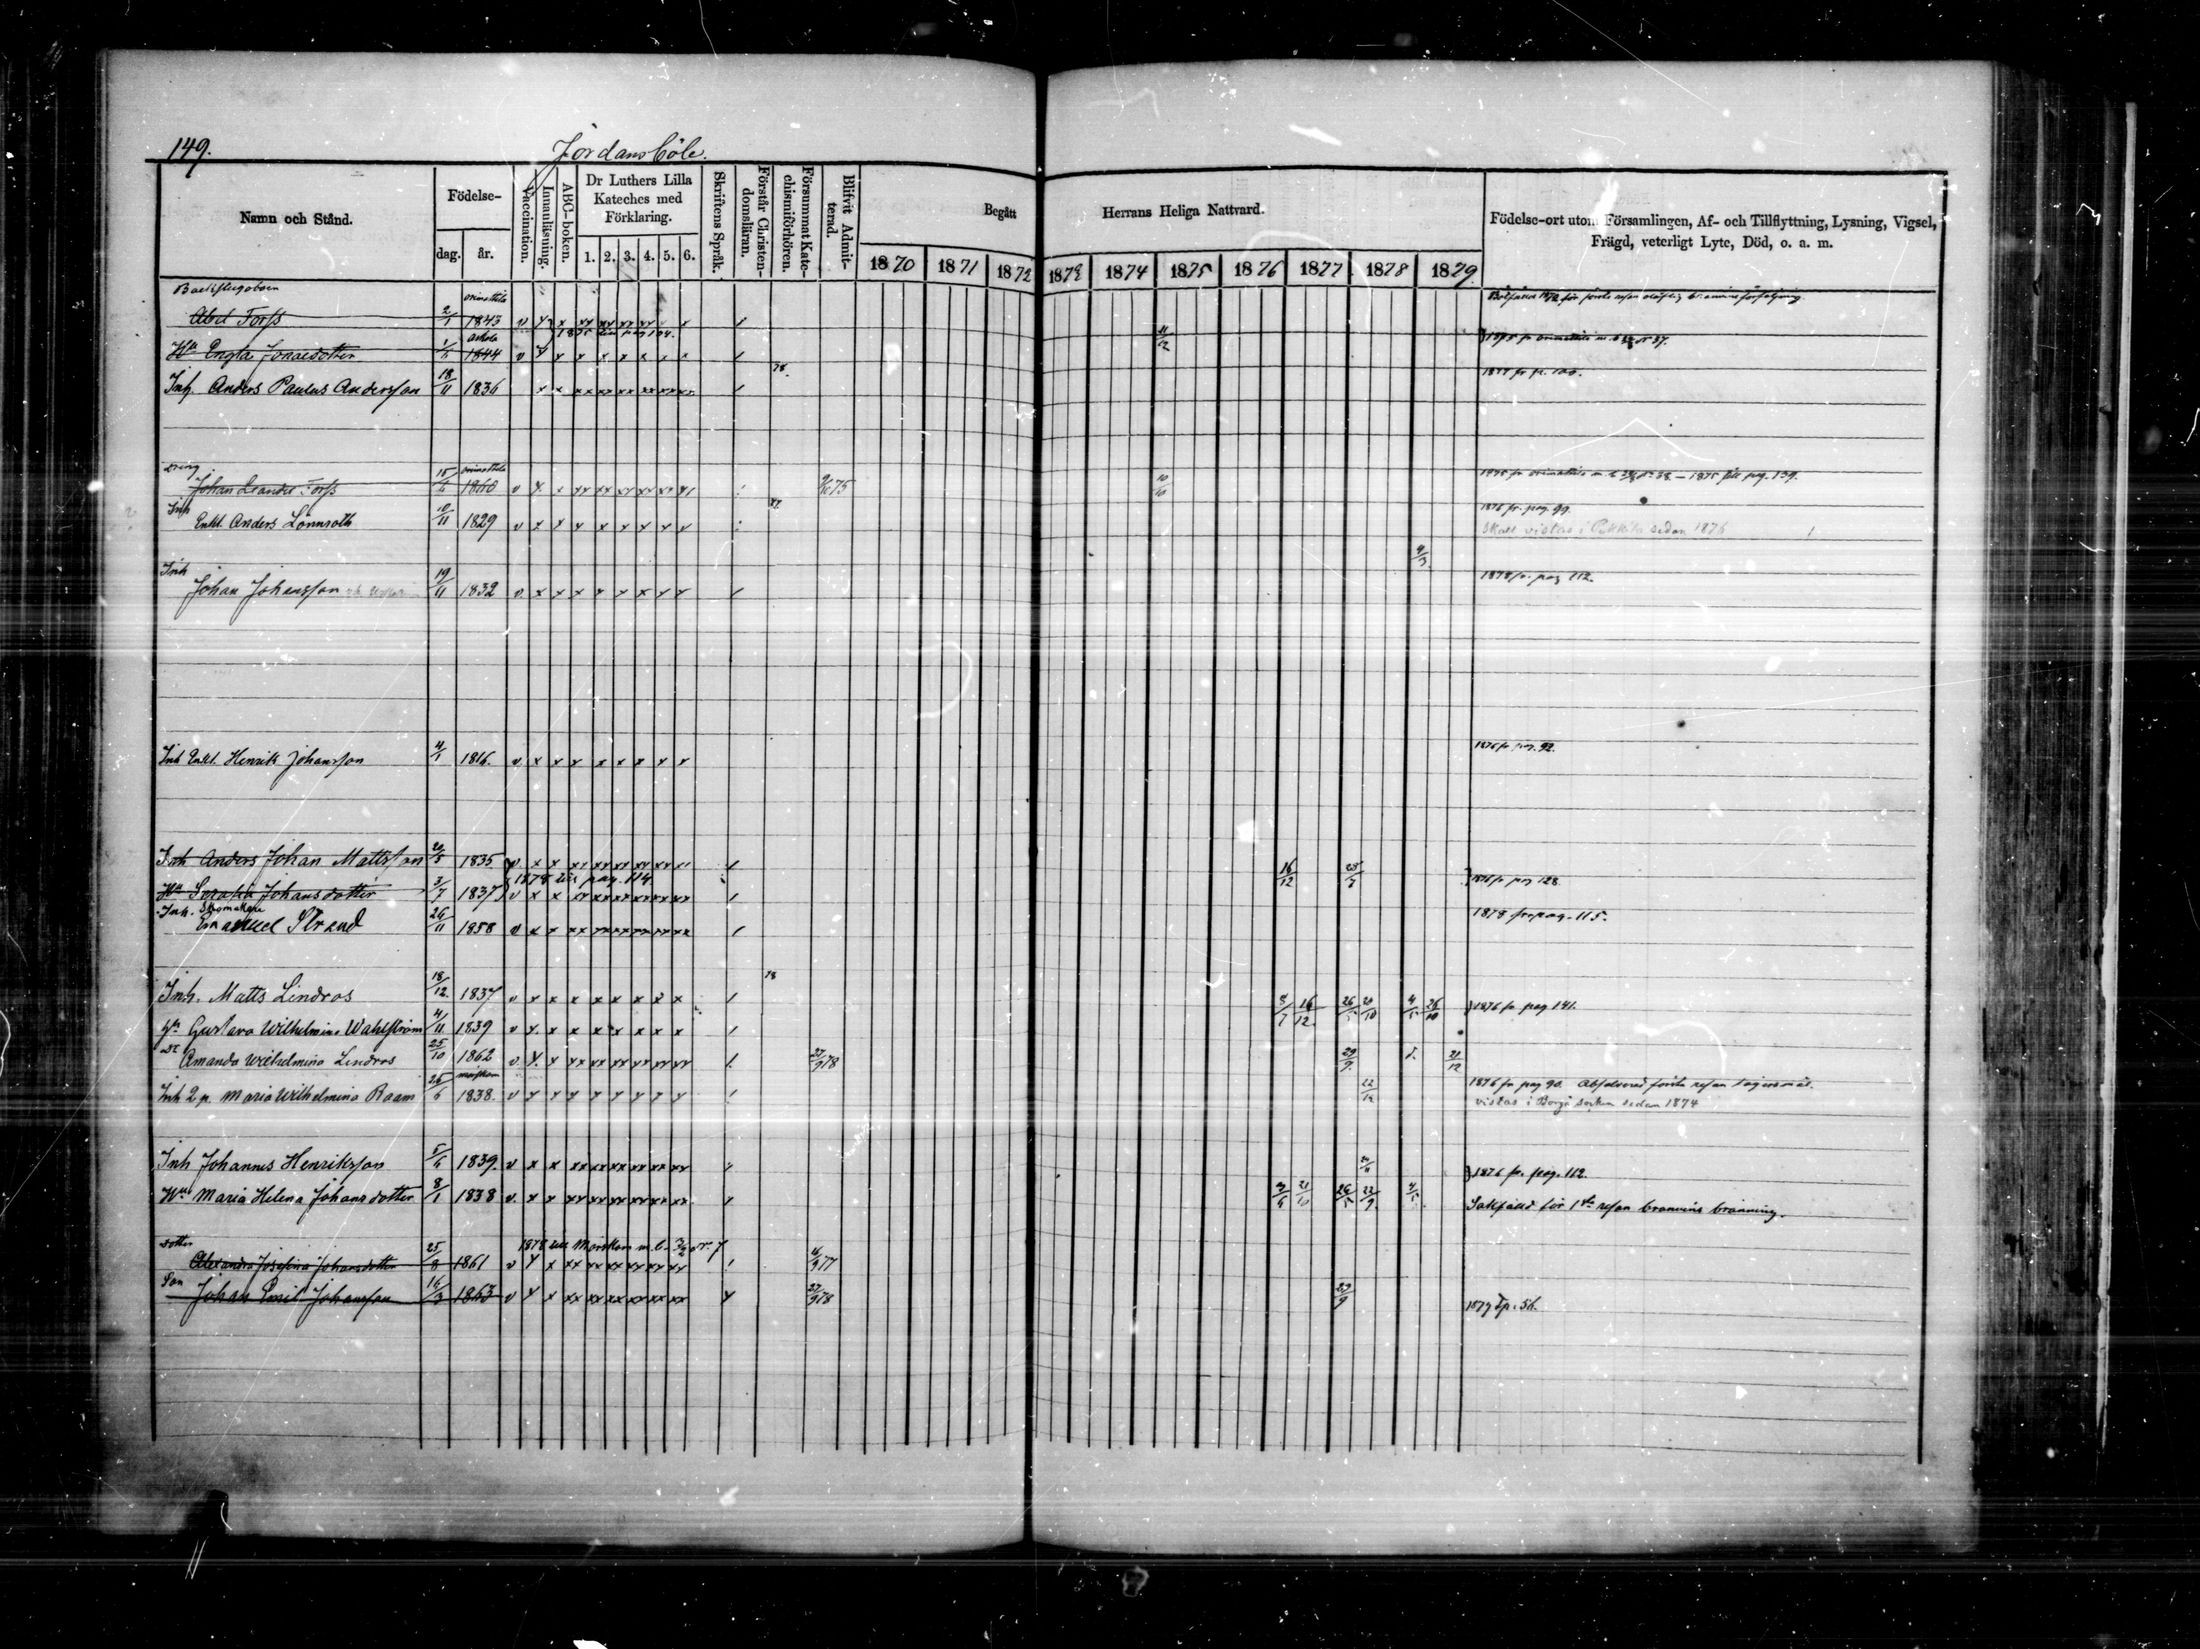 149. Jordansböle.
Namn och Stånd.
Födelse-
dag. år.
Vaccination.
Innanläsning.
ABC-boken.
Dr Luthers Lilla
Kateches med
Förklaring.
1. 2. 3. 4. 5. 6.
Skriftens Språk.
Förstår Christen-
domsläran.
Försummat Kate-
chismiförhören.
Blifvit Admit-
terad.
Begått Herrans Heliga Nattvard.
1870 1871 1872 1873 1874 1875 1876 1877 1878 1879
Födelse-ort utom Församlingen, Af- och Tillflyttning, Lysning, Vigsel,
Frägd, veterligt Lyte, Död, o. a. m.
Backstugoboen
Abel Forss 2/1 1843 orimattila
1875 till pag 104.
Hu Engla Jonaedotter 1844 askola 11/12
Inh. Anders Paulus Andersson 18/11 1836 78. 1877 fr p. 100.
dreng
Johan Leander Forss 15/6 1860 orimattila 75 10/10 1875 till pag. 139.
Inh
Enkl. Anders Lönnroth 10/11 1829 77. 1876 fr. pag. 99.
Skall vistas i Pukkila sedan 1876
Inh
Johan Johansson 19/11 1832 4/3. 1878 fr. pag 112.
Inh Enkl. Henrik Johansson 4/1 1816. 1876 fr. pag. 92.
Inh Anders Johan Mattsson 20/5 1835
1878 till pag. 114.
Hu Serafia Johansdotter 3/7 1837 16/12 25/7 1876 fr pag 128.
Inh. Skomakare
Emanuel Strand 26/11 1858 1878 fr pag. 115.
Inh. Matts Lindros 18/12. 1837 78 8/7 16/12. 26/5 20/10 4/5 26/10 1876 fr pag 141.
Hu Gustava Wilhelmina Wahlström 4/11 1839
Dr Amanda Wilhelmina Lindros 25/10 1862 27/9 78 29/9. 21/12
Inh Q.p. Maria Wilhelmina Raam 26/6 1838. mörskom 22/12 1876 fr pag 90. Absolverad första resan lägersmål.
vistas i Borgå socken sedan 1874
Inh Johannes Henriksson 5/6 1839. 24/11 1876 fr. pag. 112.
Hu Maria Helena Johansdotter 8/1 1838 3/6 21/10 26/5 22/9. 4/5 Sakfälld för 1sta resan bränvins bränning.
dotter 1878 till Mörskom m.b. 3/2 No 7
Alexandra Josefina Johansdotter 25/8 1861 16/9 77
Son
Johan Emil Johansson 16/3 1863 27/9 78 29/9 1879 T p. 56.